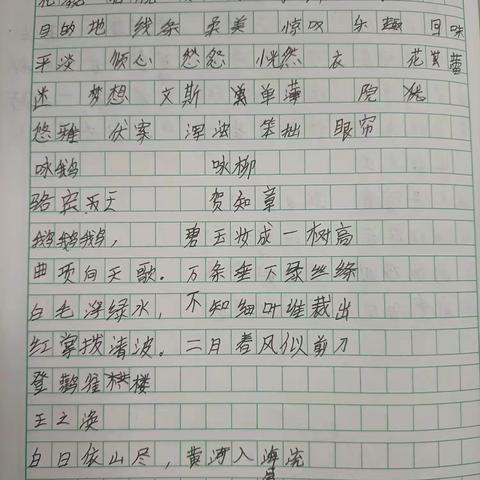 目的地 线条 柔美 惊叹 乐趣 回味
平淡 倾心 愁怨 恍然 衣 花蕾
迷 梦想 文斯 单薄 院
悠雅 伏案 浑浊 笨拙 眼帘
咏鹅 咏柳
骆宾天 贺知章
鹅鹅鹅， 碧玉妆成一树高
曲项向天歌. 万条垂下绿丝绦
白毛浮绿水， 不知细叶谁裁出
红掌拨清波. 二月春风似剪刀
登鹳雀楼
王之涣
白日依山尽，黄河入海流